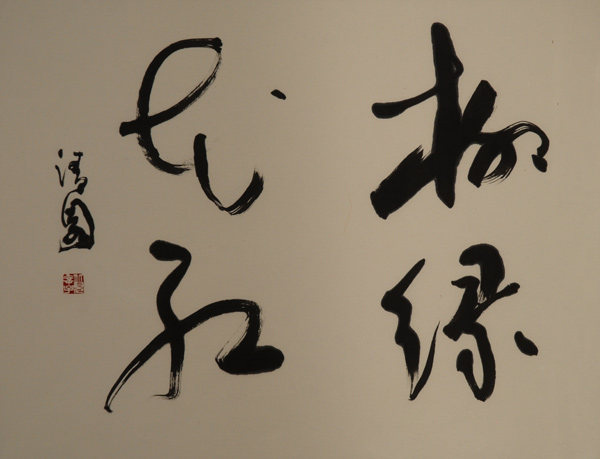 柳緑
花紅
清園